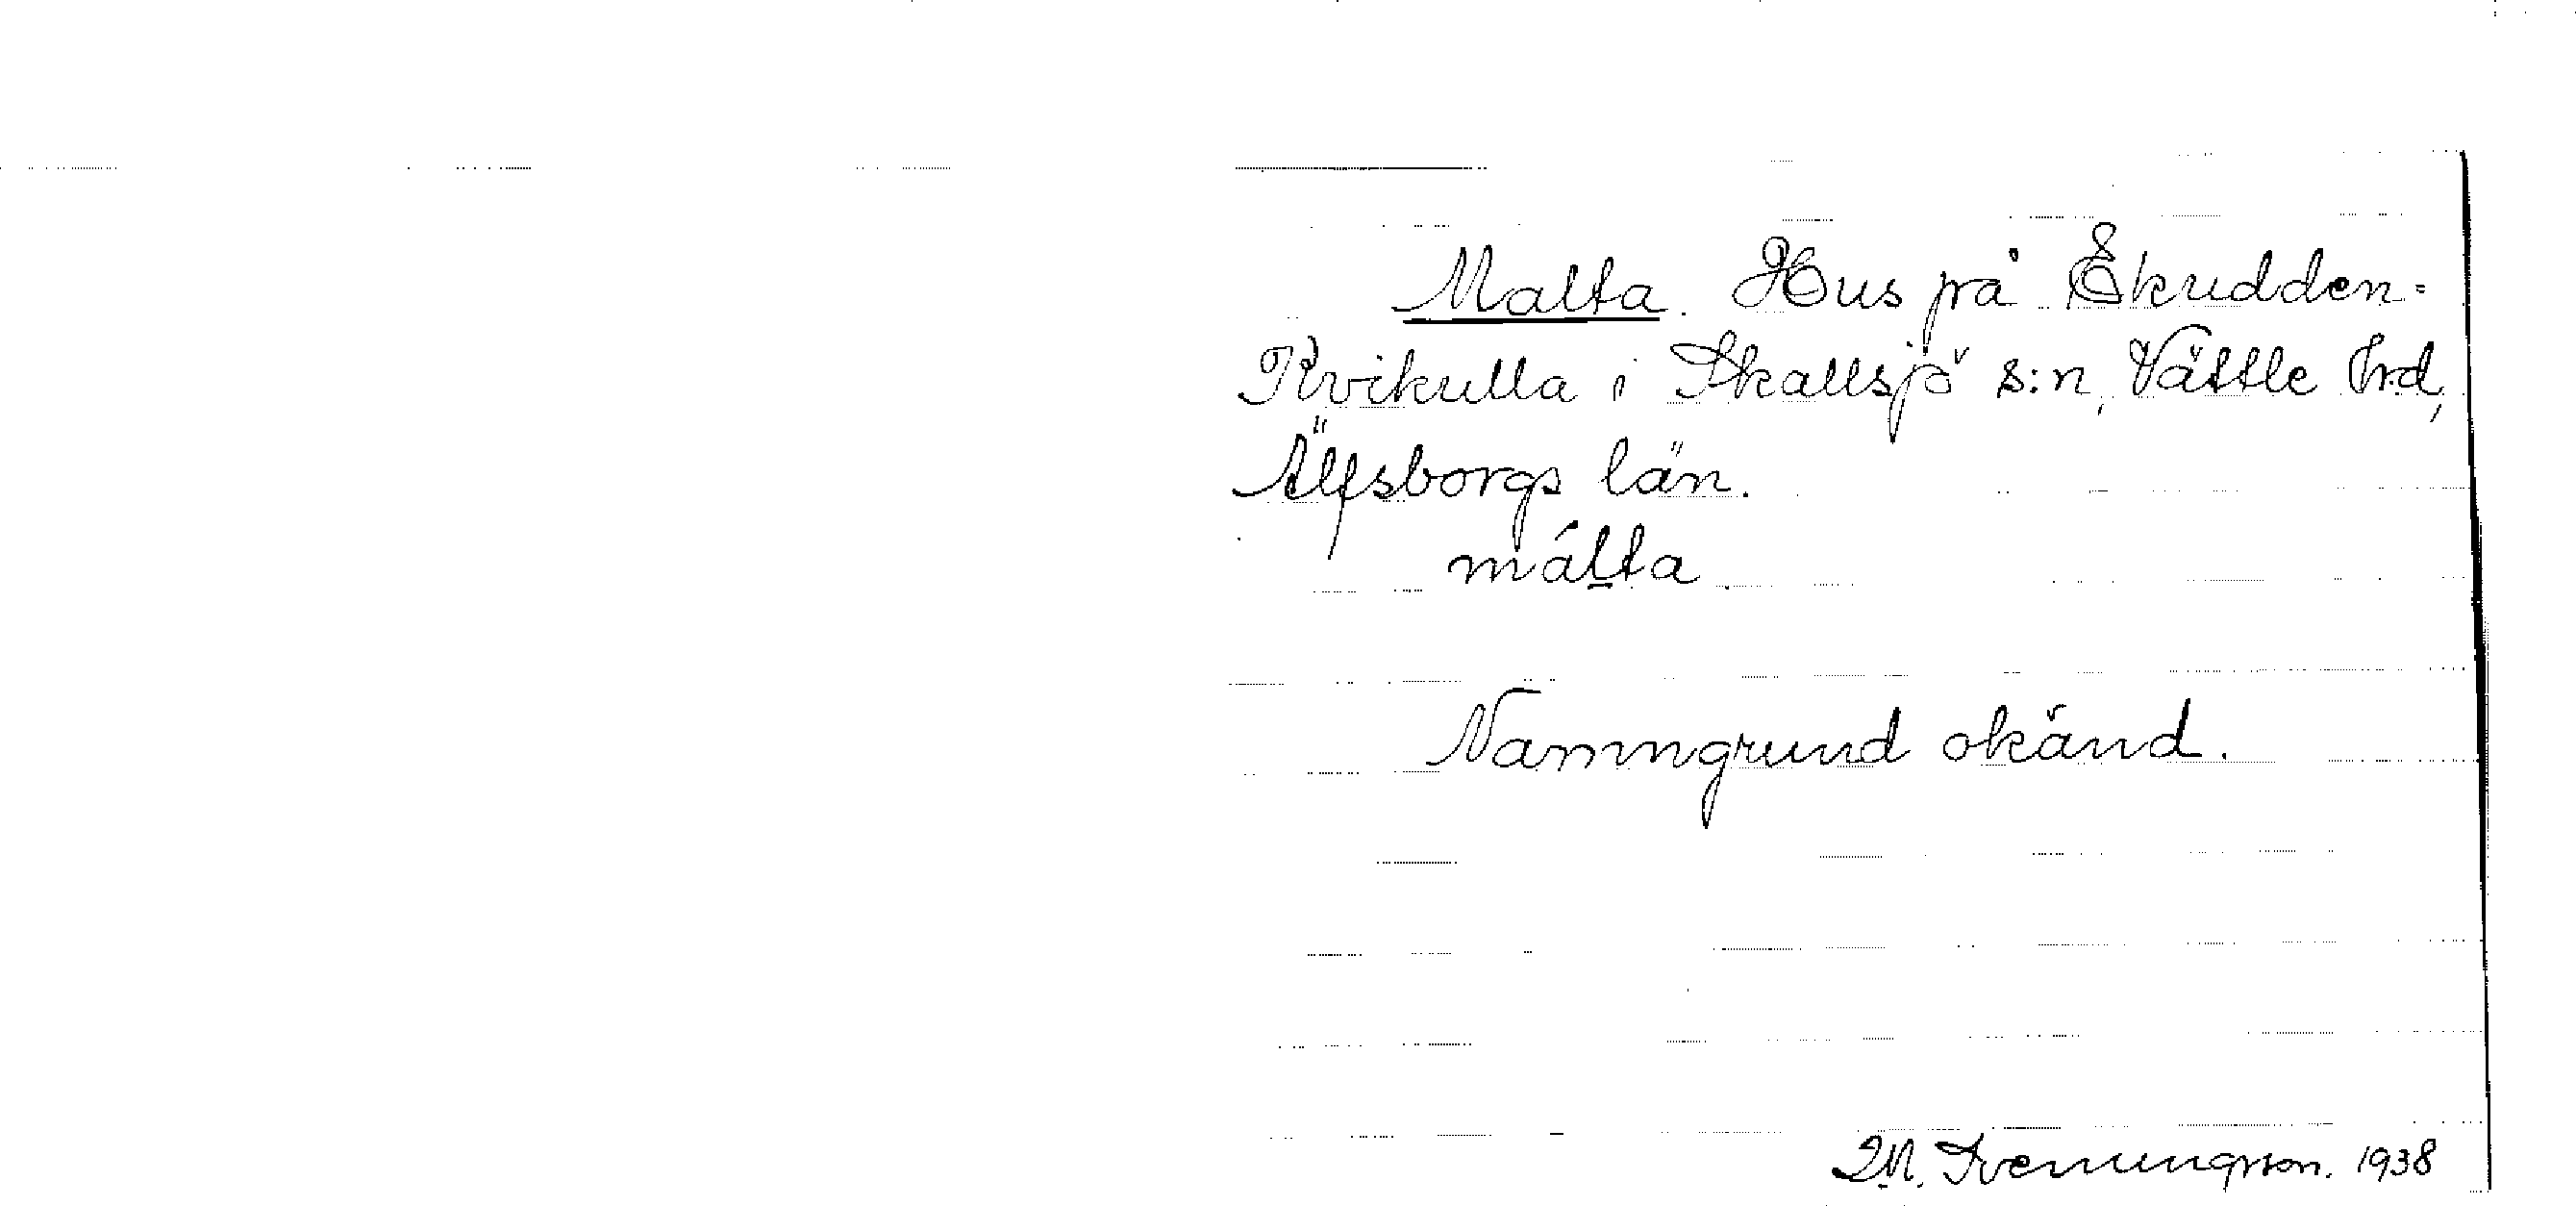 Malta. Hus på Ekudden=
Kvikulla i Skallsjö s:n, Vättle hrd,
Älfsborgs län.
málta
Namngrund okänd.
M. Svenungsson. 1938